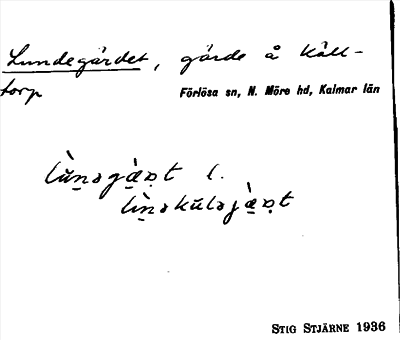 Lundegärdet, gärde å Käll-
torp
Förlösa sn, N. Möre hd, Kalmar län
lùṉəgæ̠̀ṇt l.
lìṉəkūləjæ̠̀ṇt
STIG STJÄRNE 1936